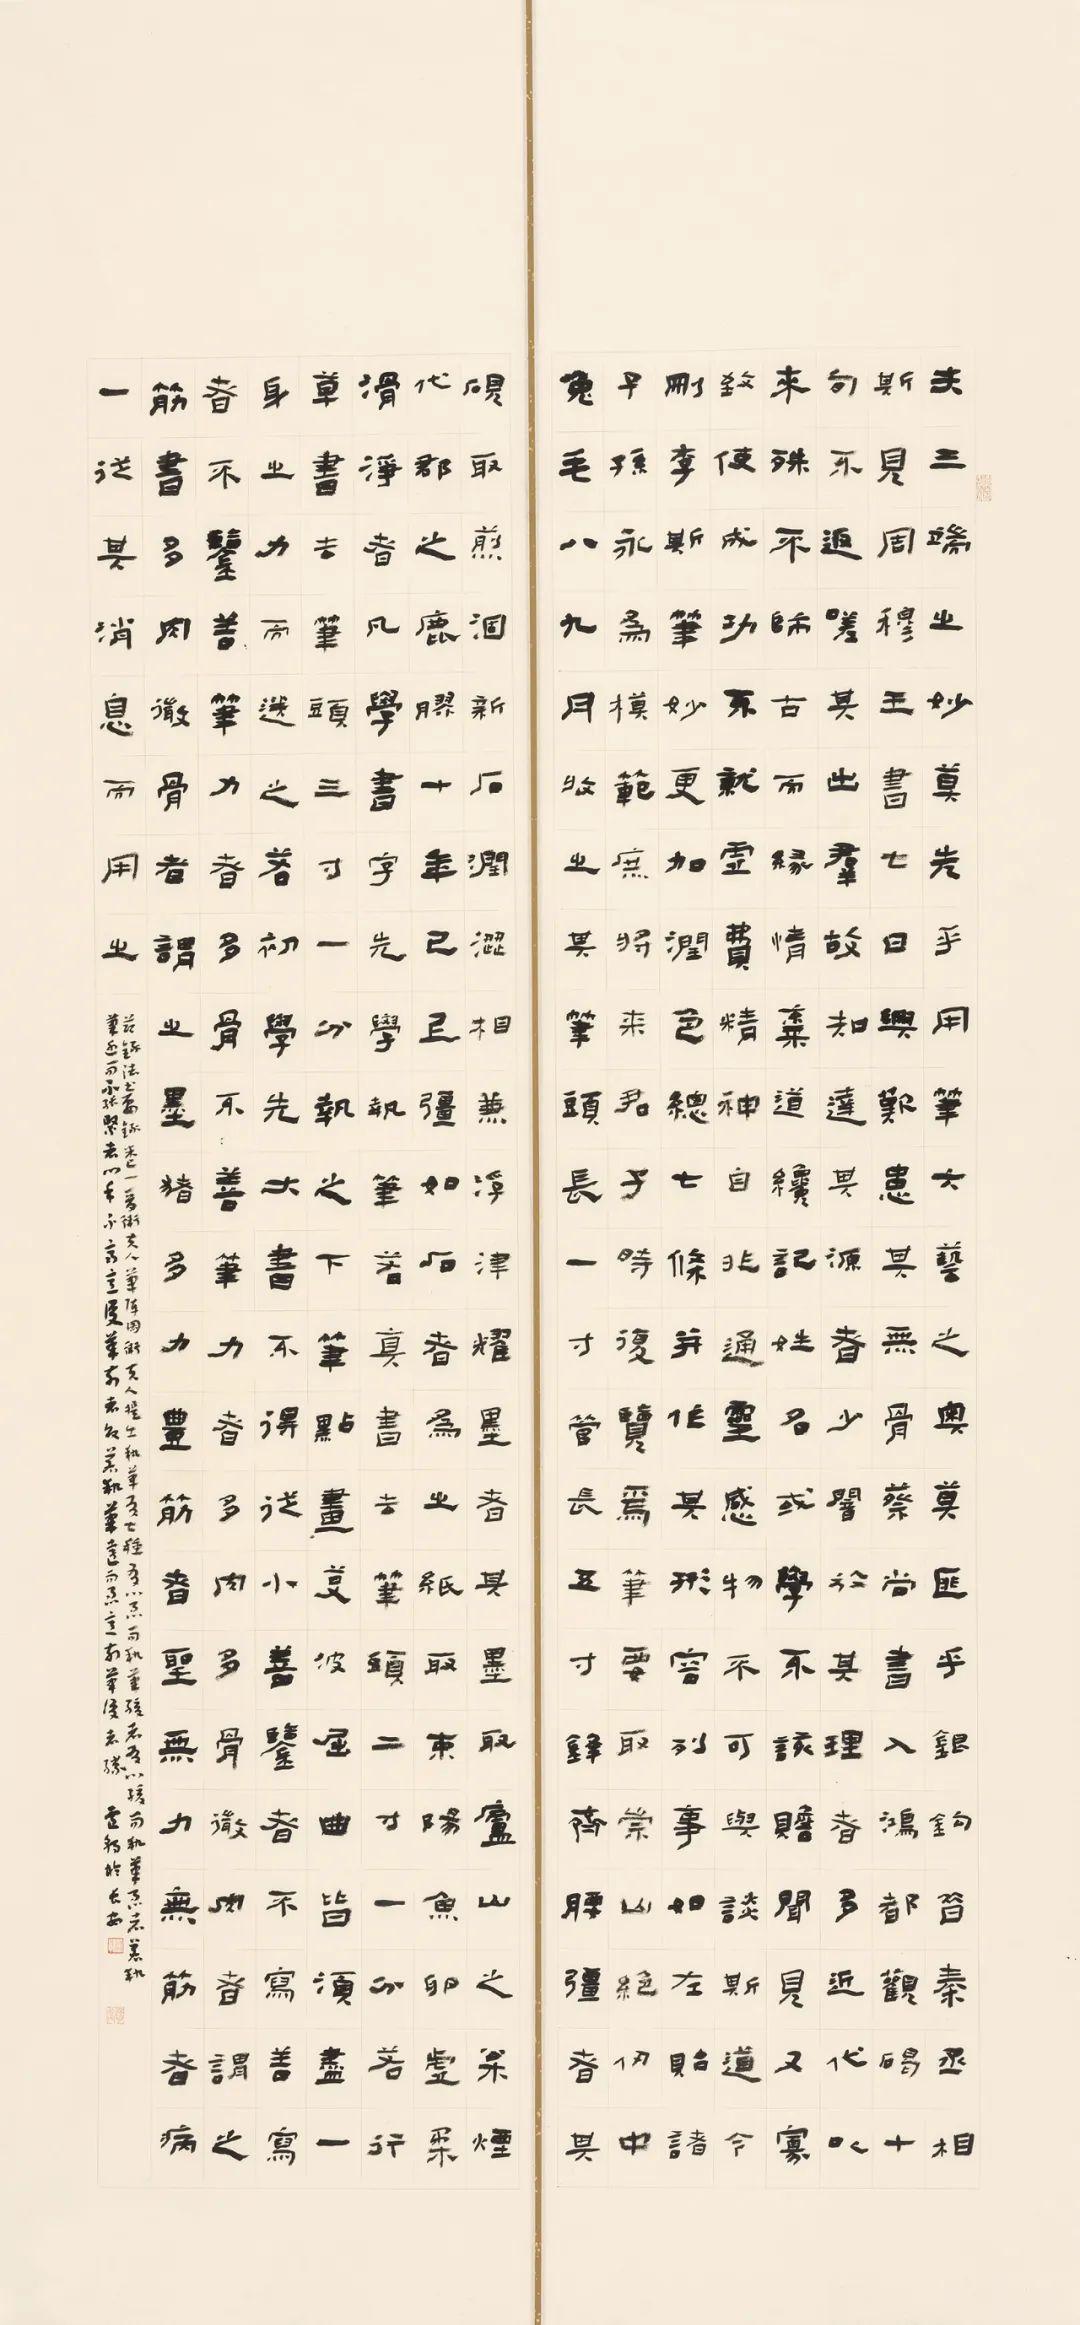 夫三端之妙莫先乎用筆六藝之奧莫匪乎銀鉤昔秦丞相
斯見周穆王書七日興歎患其無骨蔡尚書入鴻都觀碣十
旬不返嗟其出羣故知達其源者少闇於其理者多近代以
來殊不師古而緣情棄道纔記姓名或學不該贍聞見又寡
致使成功不就虛費精神自非通靈感物不可與談斯道今
刪李斯筆妙更加潤色總七條并作其形容列事如左貽諸
子孫永為模範庶將來君子時復覽焉筆要取崇山絕仞中
兔毛八九月收之其筆頭長一寸管長五寸鋒齊腰彊者其
硯取煎涸新石潤澀相兼浮津耀墨者其墨取廬山之松煙
代郡之鹿膠十年已上彊如石者為之紙取東陽魚卵虛柔
滑淨者凡學書字先學執筆若真書去筆頭二寸一分若行
草書去筆頭三寸一分執之下筆點畫芟波屈曲皆須盡一
身之力而送之若初學先大書不得從小善鑒者不寫善寫
者不鑒善筆力者多骨不善筆力者多肉多骨微肉者謂之
筋書多肉微骨者謂之墨猪多力豊筋者聖無力無筋者病
一從其消息而用之
茲錄法書要錄卷一衛夫人筆陣图衛夫人提出執筆有七種有心急而執筆緩者有心緩而執筆急者若執
筆近而不緊者心手不齊意後筆前者敗若執筆遠而急意前筆後者勝 於長安